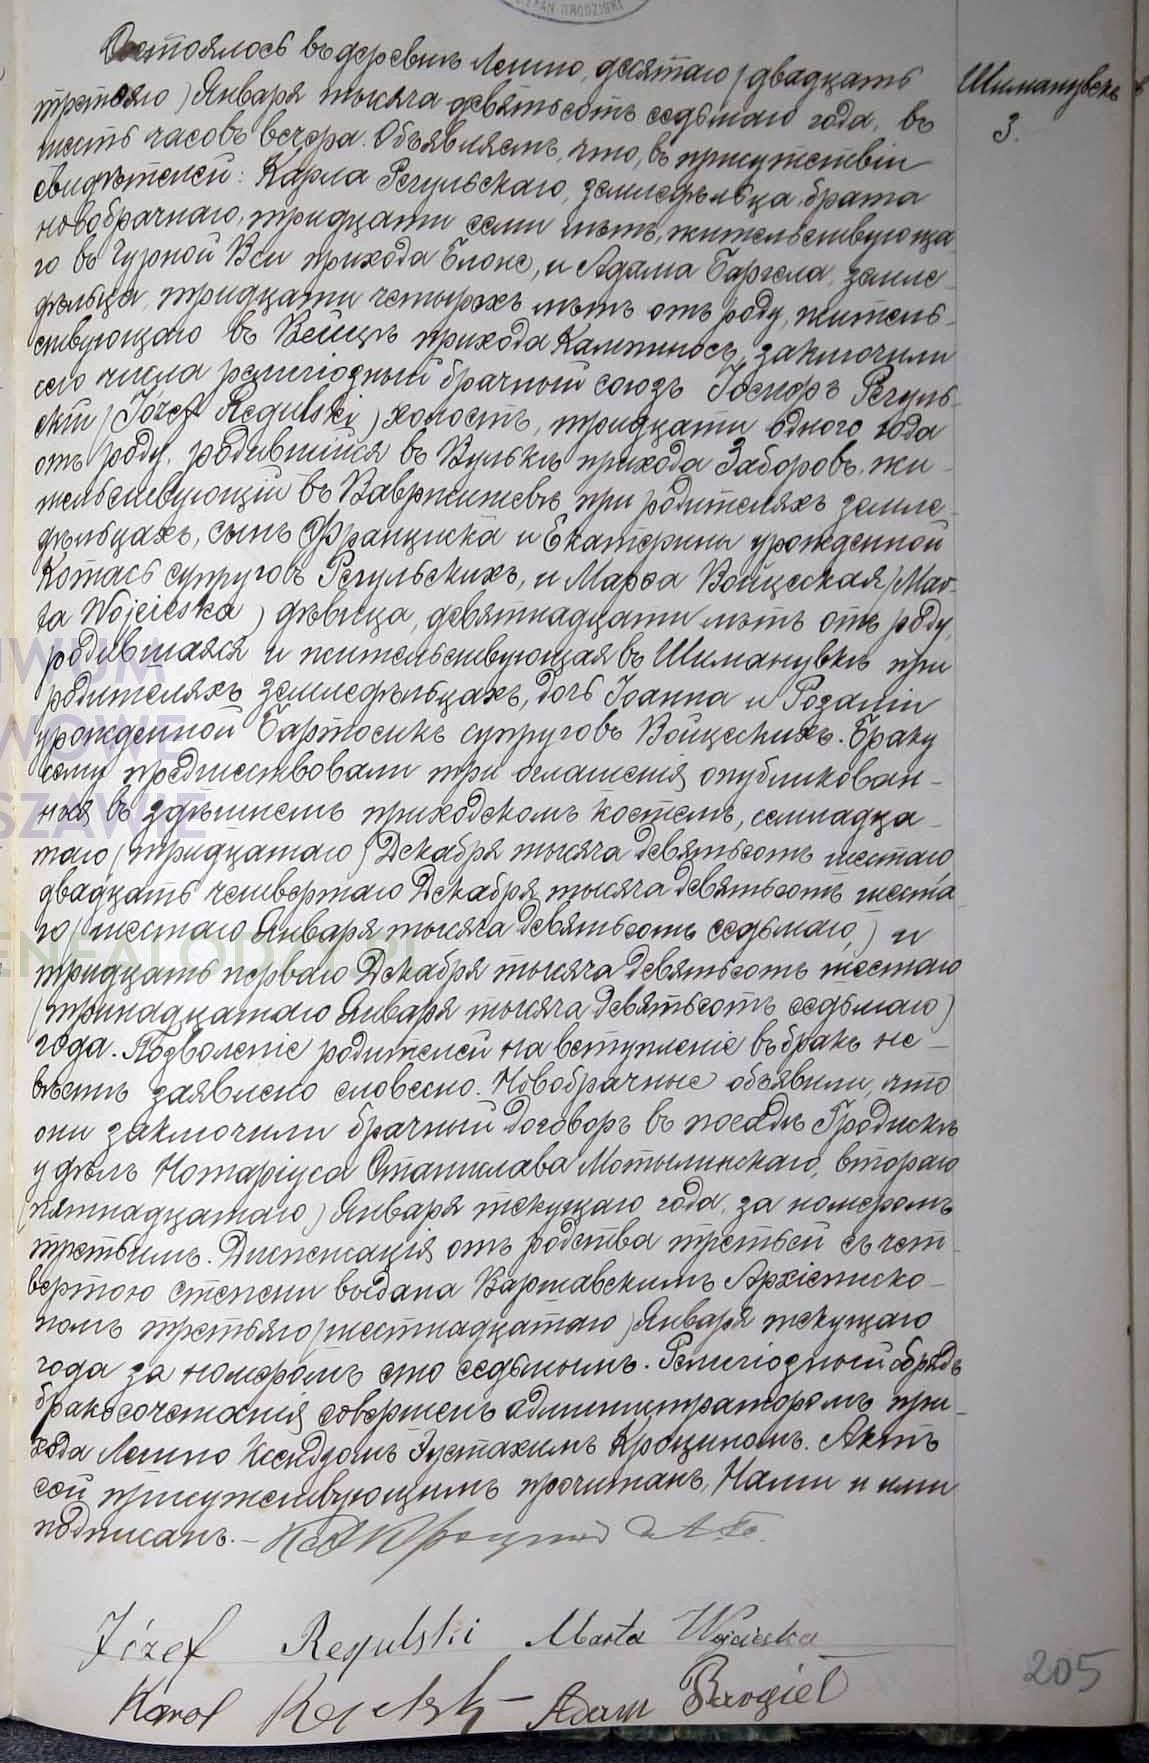 Состоялось въ деревнѣ Лешно, десятаго (двадцать
Шимановекъ
третьяго) Января тысяча девятьсотъ седьмаго года, въ
3.
шесть часовъ вечера. Объявляемъ, что, въ присутствіи
свидѣтелей: Карла Регульскаго, земледѣльца, брата
новобрачнаго, тридцати семи лѣтъ, жительствующа
го въ Гурной Вси прихода Блоне, и Адама Баргела, земле-
дѣльца, тридцати четырехъ лѣтъ отъ роду, житель-
ствующаго въ прихода Кампиносъ, заключили
сего числа религіозный брачный союзъ Іосифъ Регуль-
скій (Józef Regulski) холостъ, тридцати одного года
отъ роду, родившійся въ Вулькѣ прихода Заборовъ, жи-
тельствующій въ Вавржишевѣ при родителяхъ земле-
дѣльцахъ, сынъ Франциска и Екатерины урожденной
Котасъ супруговъ Регульскихъ, и Марфа Войцеская (Mar-
ta Wojcieska) дѣвица, девятнадцати лѣтъ отъ роду,
родившаяся и жительствующая въ Шимановкѣ при
родителяхъ земледѣльцахъ, дочь Іоанна и Розаліи
урожденной Бартосикъ супруговъ Войцескихъ. Браку
сему предшествовали три оглашенія, опубликован-
ныя въ здѣшнемъ приходскомъ костелѣ, семнадца-
таго (тридцатаго) Декабря тысяча девятьсотъ шестаго,
двадцать четвертаго Декабря тысяча девятьсотъ шеста-
го (шестаго Января тысяча девятьсотъ седьмаго,) и
тридцать перваго Декабря тысяча девятьсотъ шестаго
(тринадцатаго Января тысяча девятьсотъ седьмаго)
года. Позволеніе родителей на вступленіе въ бракъ не-
вѣстѣ заявлено словесно. Новобрачные объявили, что
они заключили брачный договоръ въ посадѣ Гродискъ
у дѣлъ Нотаріуса Станислава Мотылинскаго, втораго
(пятнадцатаго) Января текущаго года, за номеромъ
третьимъ. Диспенсація отъ родства третьей съ чет-
вертою степени выдана Варшавскимъ Архіеписко-
помъ третьяго (шестнадцатаго) Января текущаго
года за номеромъ сто седьмымъ. Религіозный обрядъ
бракосочетанія совершенъ администраторомъ при-
хода Лешно Ксендзомъ Эустахимъ Кроциномъ. Актъ
сей присутствующимъ прочитанъ, Нами и ими
подписанъ. –
Józef Regulski Marta Wojcieska
Karol Regulski – Adam Bargieł
205